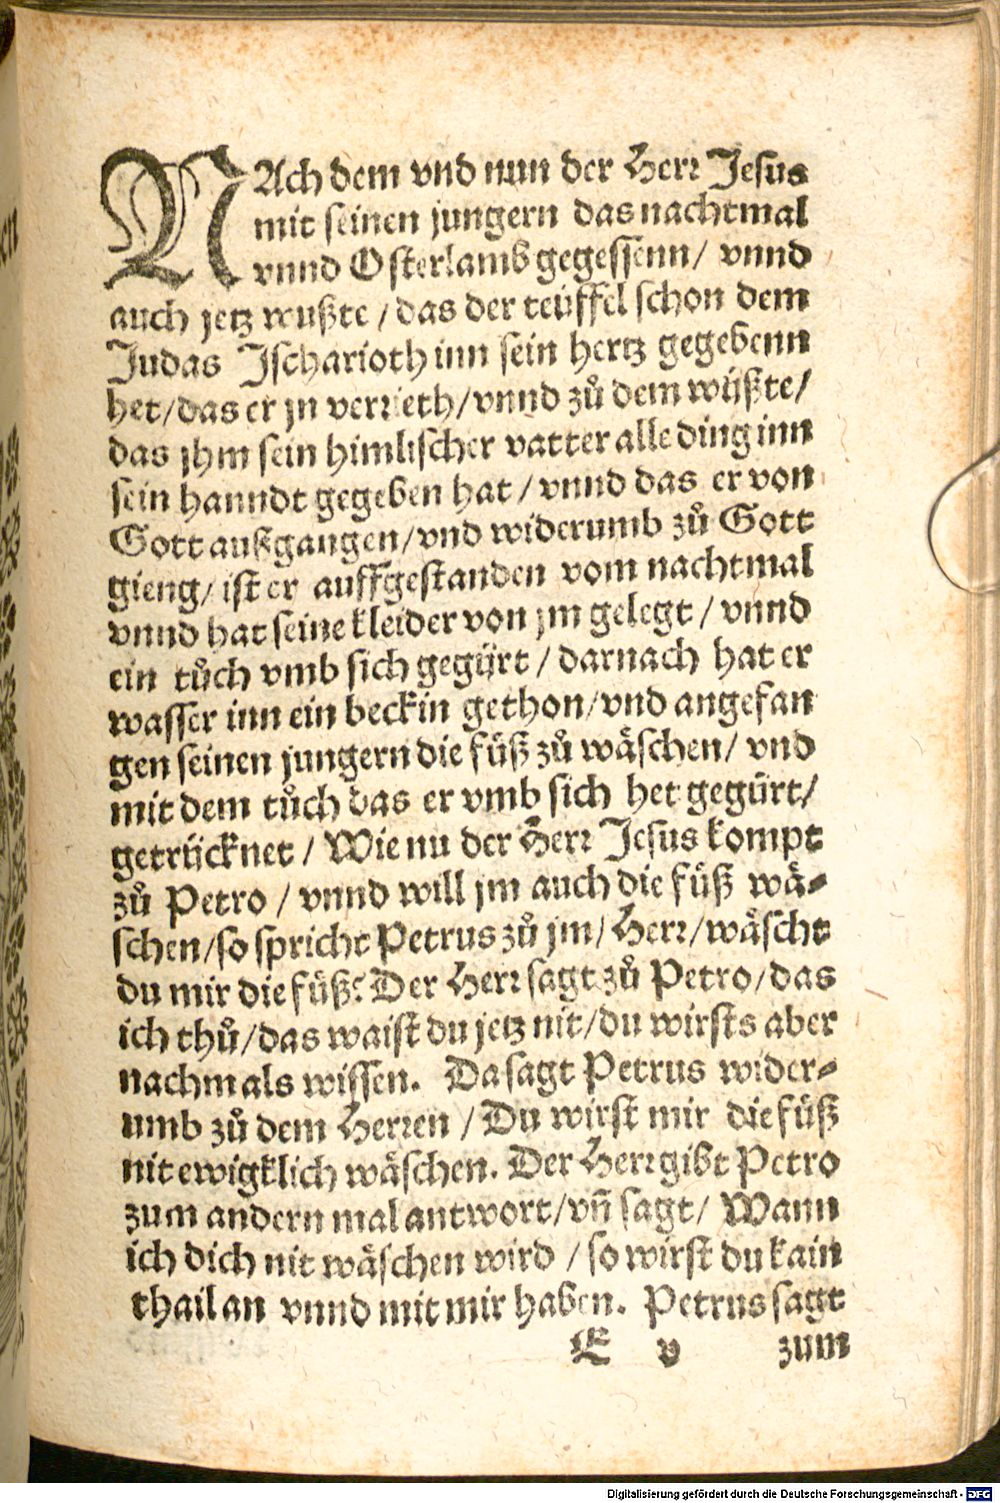 NAch dem vnd nun der Herr Jesus
mit seinen jungern das nachtmal
vnnd Osterlamb gegessenn/ vnnd
auch jetz wußte / das der teüffel schon dem
Judas Jscharioth inn sein hertz gegebenn
het/das er jn verrieth/vnnd zů dem wüßte/
das jhm sein himlischer vatter alle ding inn
sein hanndt gegeben hat / vnnd das er von
Gott außgangen/vnd widerumb zů Gott
gieng/ ist er auffgestanden vom nachtmal
vnnd hat seine kleider von jm gelegt / vnnd
ein tůch vmb sich gegürt / darnach hat er
wasser inn ein beckin gethon/vnd angefan
gen seinen jungern die füß zů wäschen/ vnd
mit dem tůch das er vmb sich het gegürt/
getrücknet / Wie nu der Herr Jesus kompt
zů Petro / vnnd will jm auch die füß wä-
schen/so spricht Petrus zů jm/ Herr/wäscht
du mir die füß? Der Herr sagt zů Petro/das
ich thů/das waist du jetz nit/du wirsts aber
nachmals wissen. Da sagt Petrus wider-
umb zů dem Herren / Du wirst mir die füß
nit ewigklich wäschen. Der Herr gibt Petro
zum andern mal antwort/vñ sagt/ Wann
ich dich nit wäschen wird / so wirst du kain
thail an vnnd mit mir haben. Petrus sagt
E v zum
Digitalisierung gefördert durch die Deutsche Forschungsgemeinschaft - DFG